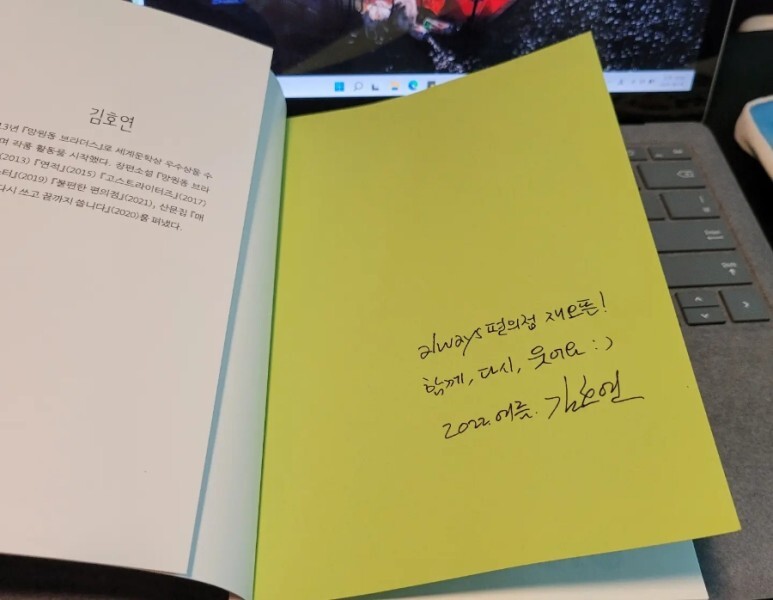 김호연
13년 『망원동 브라더스』로 세계문학상 우수상을 수
며 작품 활동을 시작했다. 장편소설 『망원동 브라
(2013) 『연적』(2015) 『고스트라이터즈』(2017)
스터』(2019) 『불편한 편의점』(2021), 산문집 『매
다시 쓰고 끝까지 씁니다』(2020)를 펴냈다.
always 편의점 재오픈!
함께, 다시, 웃어요 :)
2022. 여름. 김호연